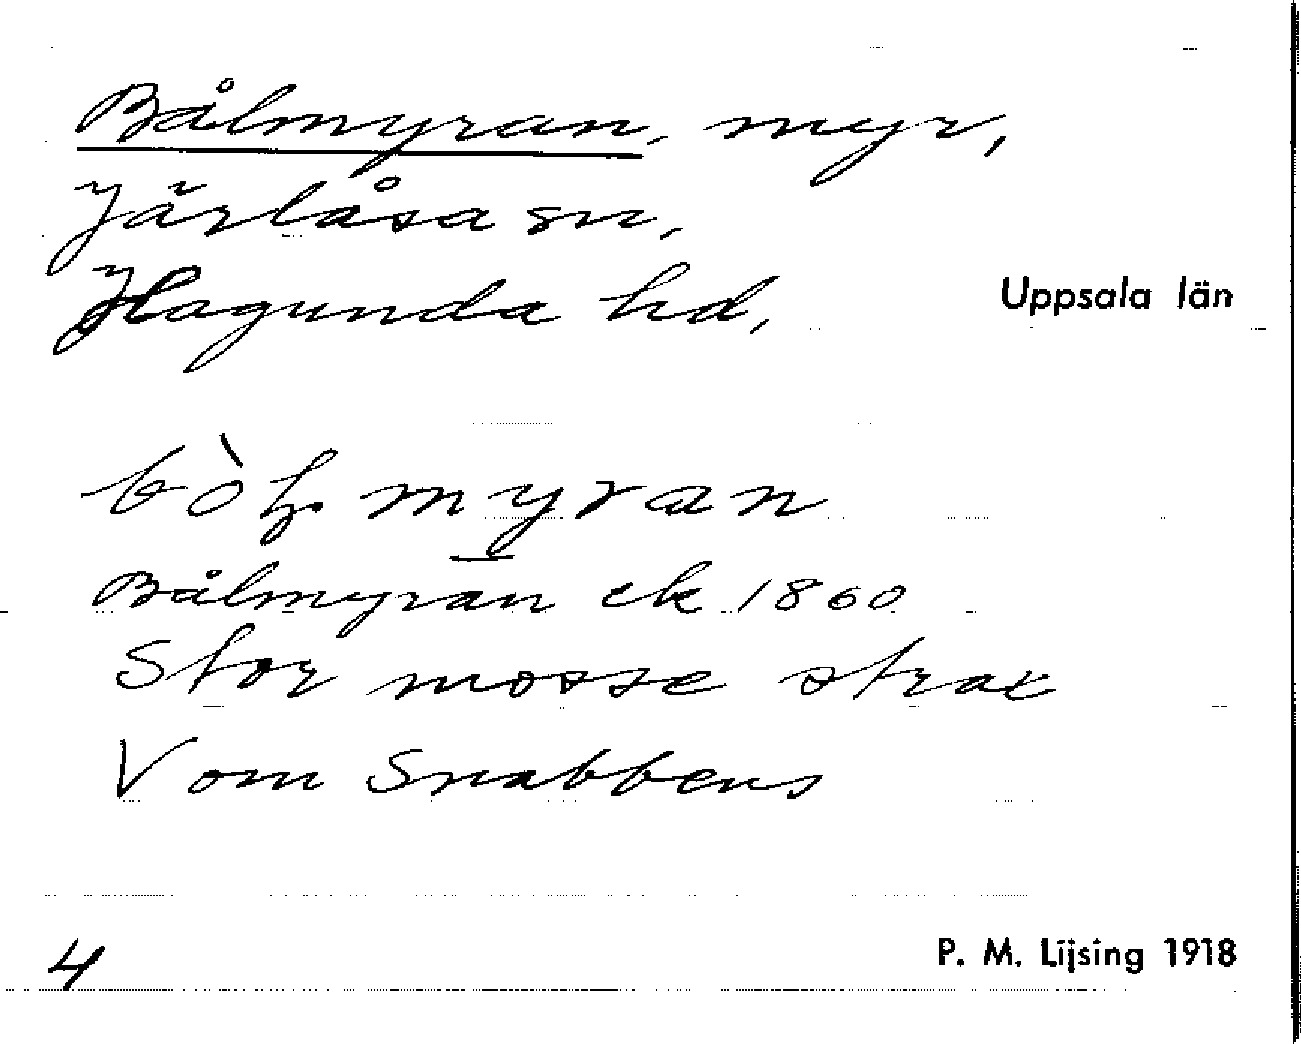 Bålmyran, myr,
Järlåsa sn,
Hagunda hd,
Uppsala län
bòḷmyran
Bålmyran ek 1860
Stor mosse strax
V om Snabbens
4
P. M. Lijsing 1918